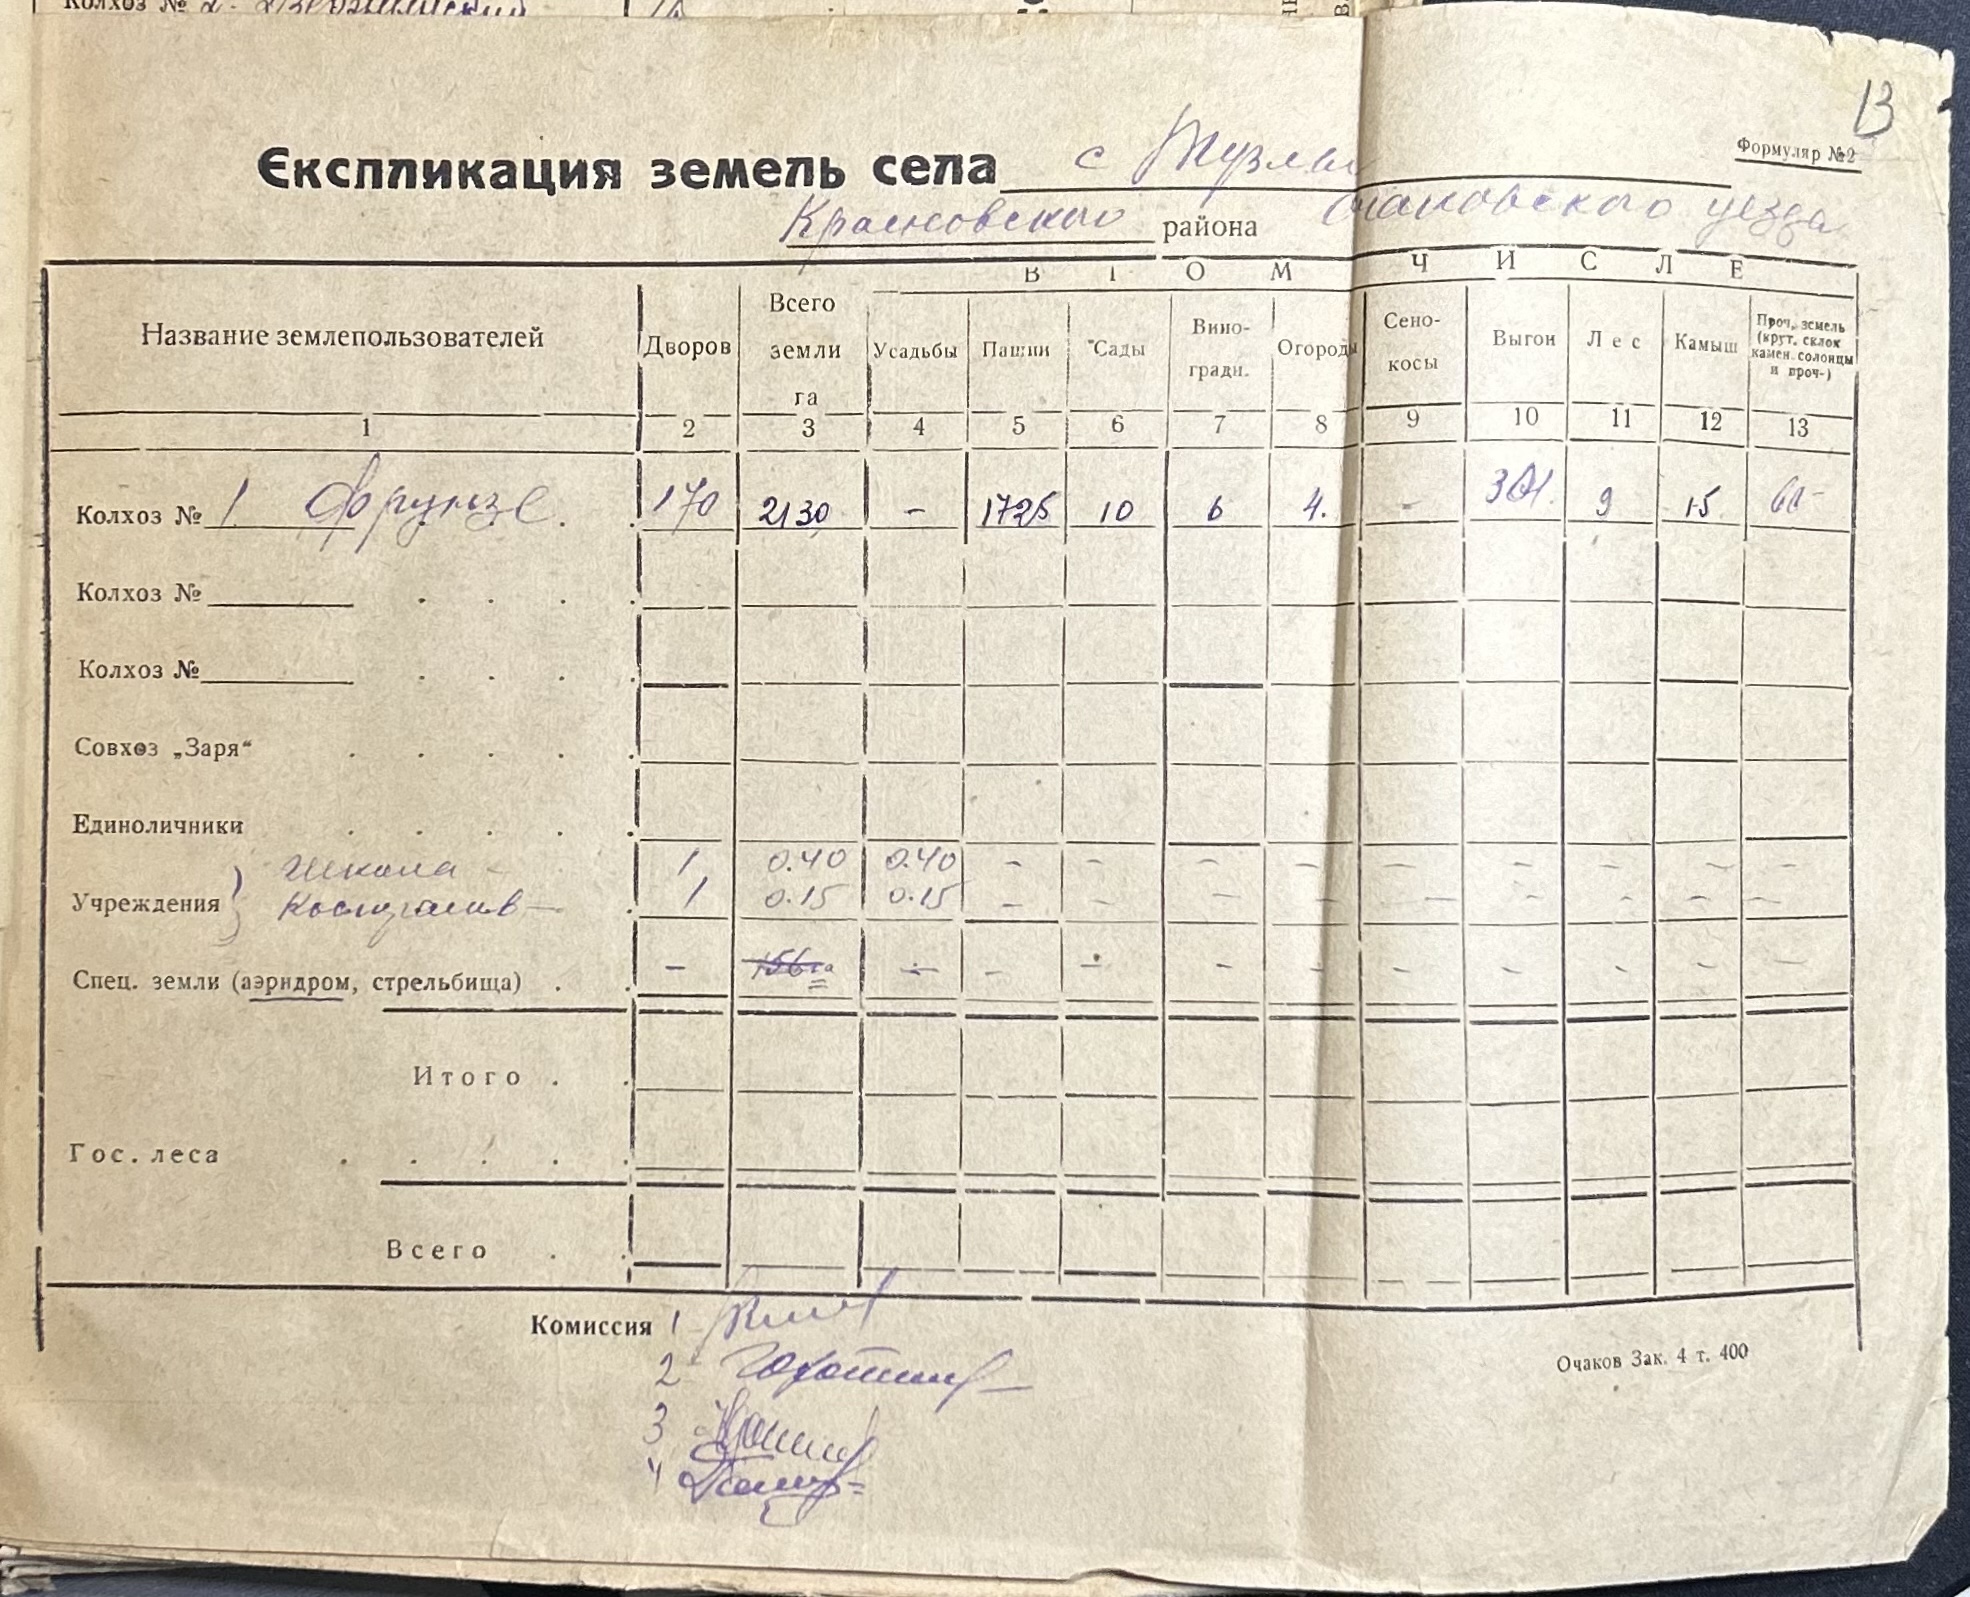 Колхоз № 2. Дзержинский
13
Формуляр №2
Експликация земель села с Тузлы
Красновского района Очаковского уезда
В ТОМ ЧИСЛЕ
Название землепользователей Дворов Всего земли га Усадьбы Пашни Сады Вино-гради. Огороды Сено-косы Выгон Лес Камыш Проч. земель (крут. склок камен. солонцы и проч-)
1 2 3 4 5 6 7 8 9 10 11 12 13
Колхоз № 1 Фрунзе. 170 2130 - 1725 10 6 4. - 301. 9 15
Колхоз №
Колхоз №
Совхоз „Заря“
Единоличники
Школа - 1 0.40 0.40 - - - - - - - - -
Учреждения 1 0.15 0.15 - - - - - - - - -
Спец. земли (аэрндром, стрельбища) - 156га - - - - - - - - - -
Итого
Гос. леса
Всего
Комиссия 1
2
3
4
Очаков Зак. 4 т. 400